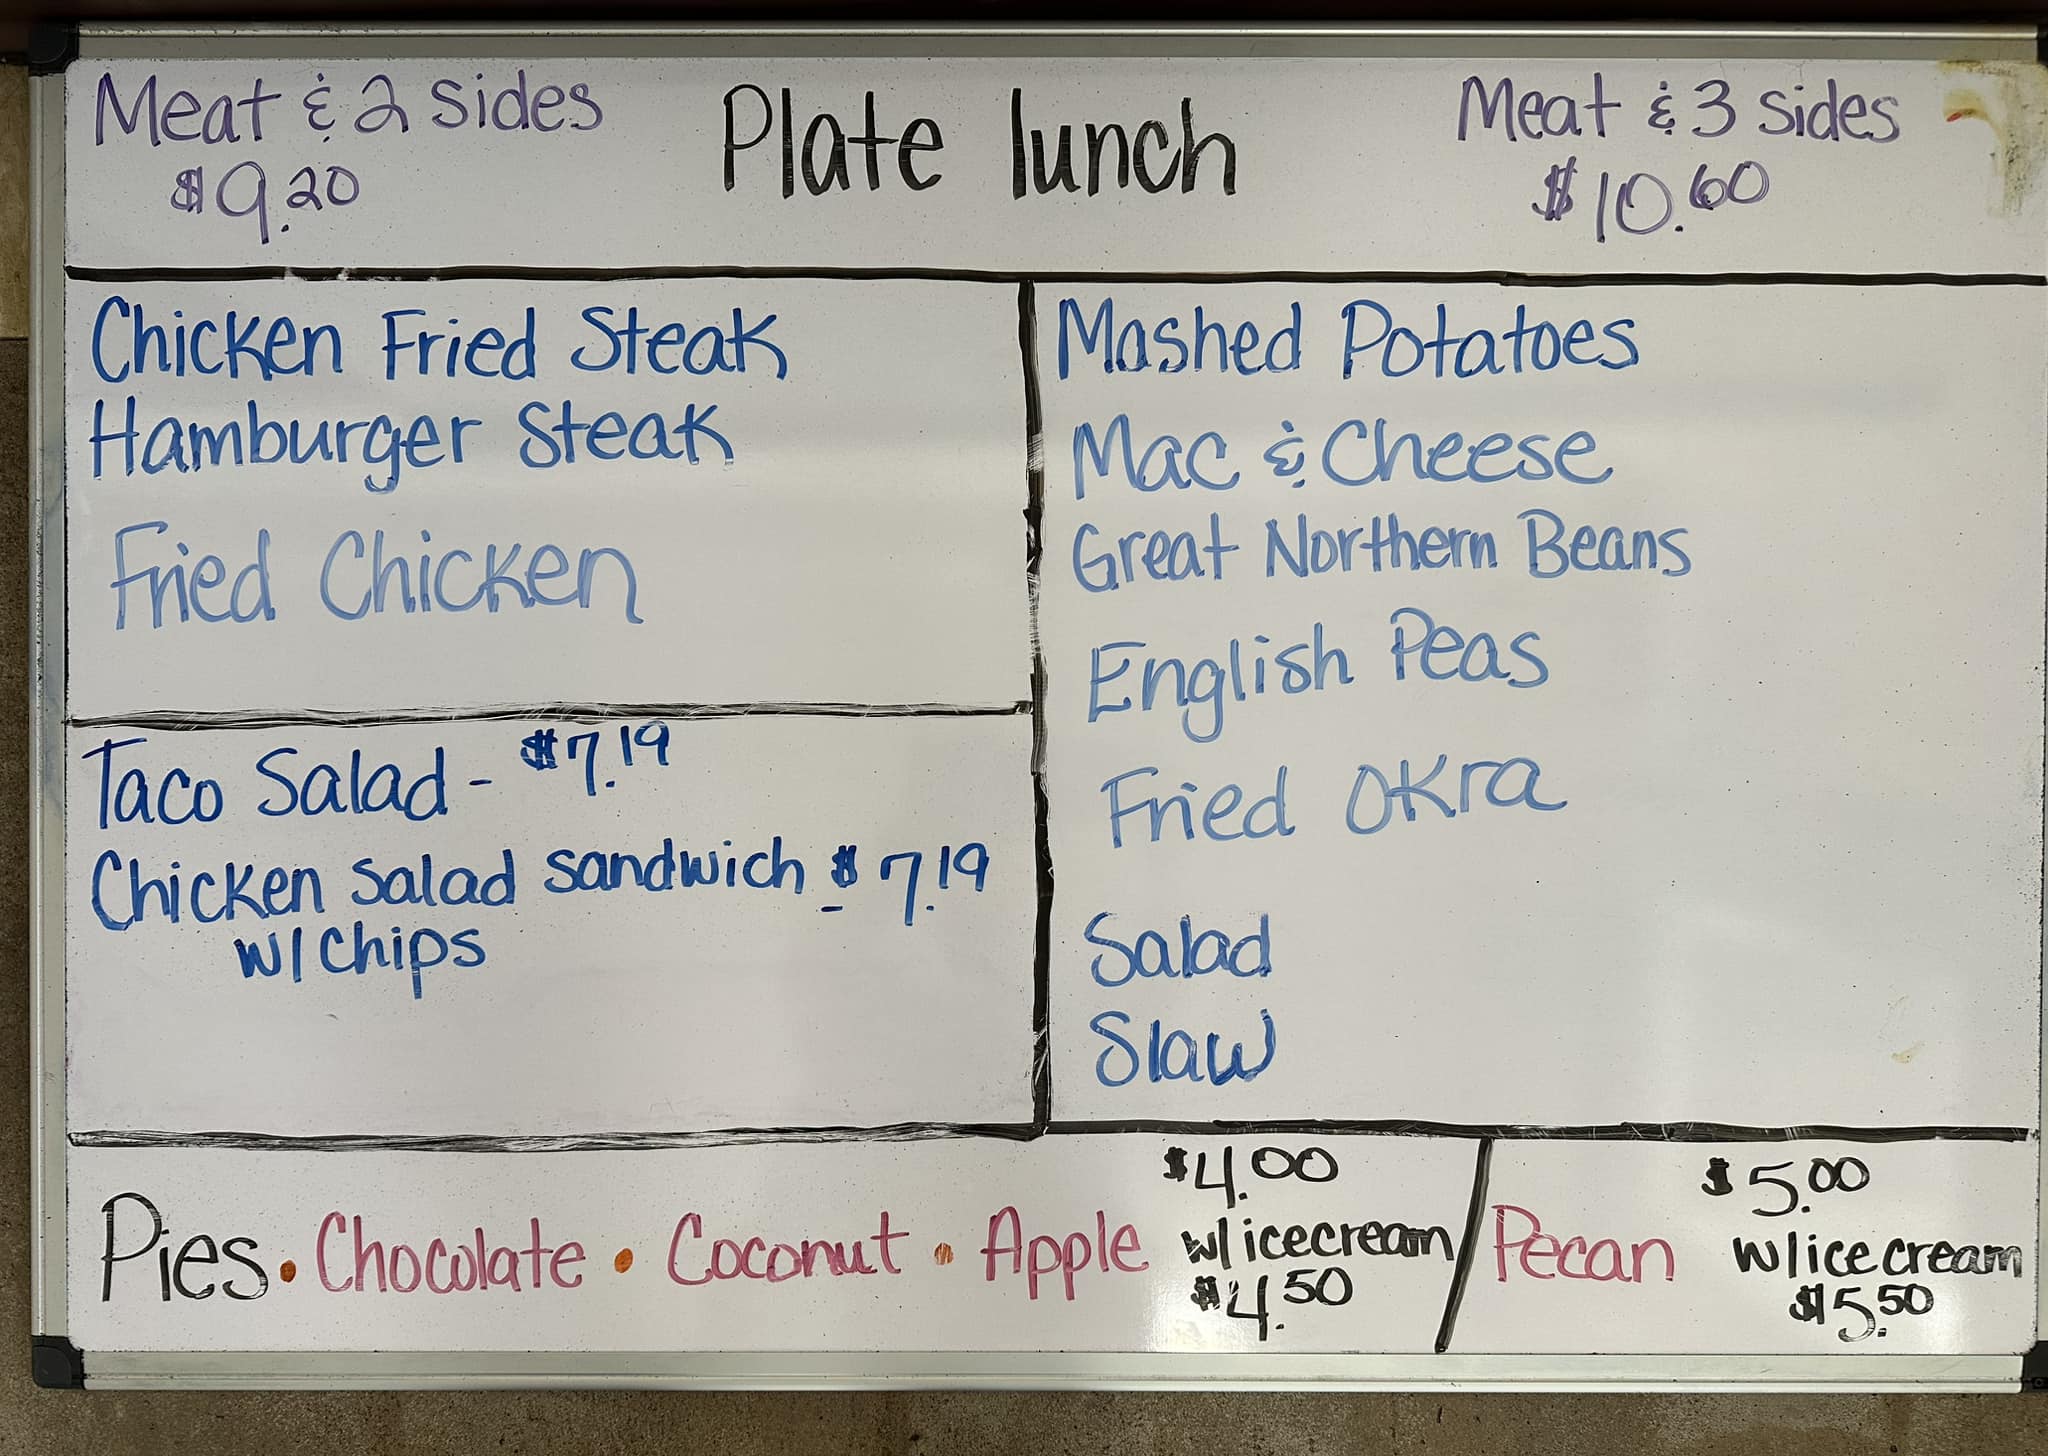 Meat & 2 sides
$9.20
Plate lunch
Meat & 3 sides
$10.60
Chicken Fried Steak
Hamburger Steak
Fried Chicken
Mashed Potatoes
Mac & Cheese
Great Northern Beans
English Peas
Fried Okra
Salad
Slaw
Taco Salad - $7.19
Chicken Salad Sandwich - $7.19
w/ chips
Pies • Chocolate • Coconut • Apple
$4.00
w/ icecream
$4.50
Pecan
$5.00
w/ice cream
$5.50